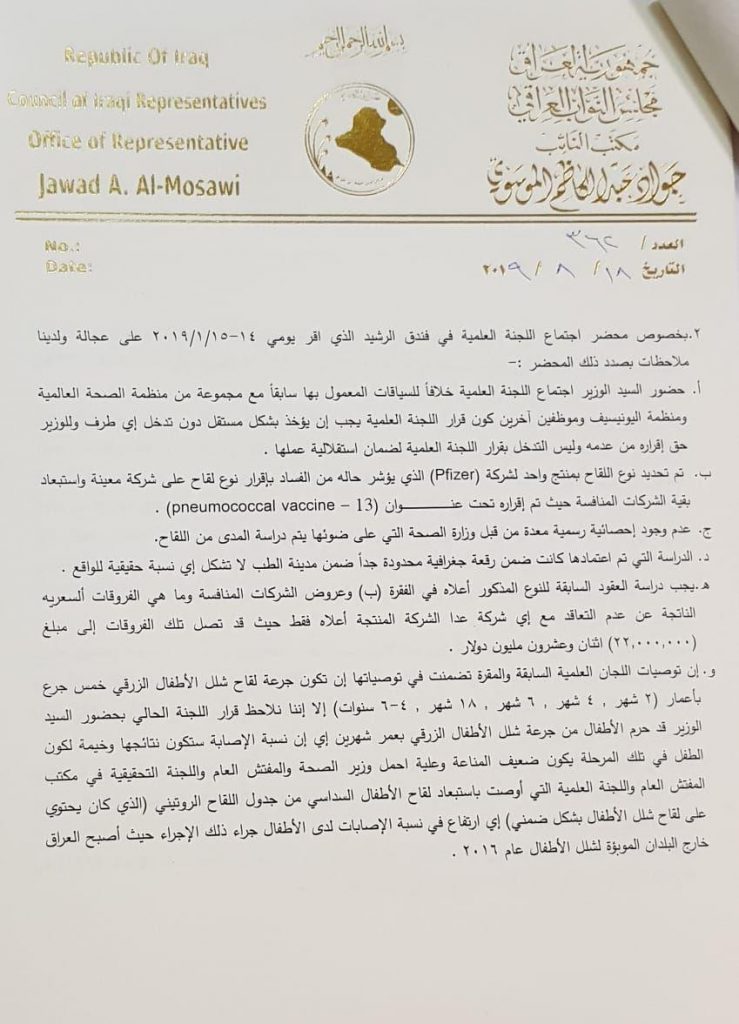 بسم الله الرحمن الرحيم
Republic Of Iraq
Council of Iraqi Representatives
Office of Representative
Jawad A. Al-Mosawi
جمهورية العراق
مجلس النواب العراقي
مكتب النائب
جواد عبد الكاظم الموسوي
No.:
Date:
العدد / ٣٦٢
التاريخ ١٨ / ٨ / ٢٠١٩
٢.بخصوص محضر اجتماع اللجنة العلمية في فندق الرشيد الذي اقر يومي ١٤-٢٠١٩/١/١٥ على عجالة ولدينا
ملاحظات بصدد ذلك المحضر :-
أ. حضور السيد الوزير اجتماع اللجنة العلمية خلافاً للسياقات المعمول بها سابقاً مع مجموعة من منظمة الصحة العالمية
ومنظمة اليونيسيف وموظفين آخرين كون قرار اللجنة العلمية يجب إن يؤخذ بشكل مستقل دون تدخل إي طرف وللوزير
حق إقراره من عدمه وليس التدخل بقرار اللجنة العلمية لضمان استقلالية عملها .
ب. تم تحديد نوع اللقاح بمنتج واحد لشركة (Pfizer) الذي يؤشر حاله من الفساد بإقرار نوع لقاح على شركة معينة واستبعاد
بقية الشركات المنافسة حيث تم إقراره تحت عنـــــــوان (pneumococcal vaccine – 13) .
ج. عدم وجود إحصائية رسمية معدة من قبل وزارة الصحة التي على ضوئها يتم دراسة المدى من اللقاح.
د. الدراسة التي تم اعتمادها كانت ضمن رقعة جغرافية محدودة جداً ضمن مدينة الطب لا تشكل إي نسبة حقيقية للواقع .
ه.يجب دراسة العقود السابقة للنوع المذكور أعلاه في الفقرة (ب) وعروض الشركات المنافسة وما هي الفروقات ألسعريه
الناتجة عن عدم التعاقد مع إي شركة عدا الشركة المنتجة أعلاه فقط حيث قد تصل تلك الفروقات إلى مبلغ
(٢٢,٠٠٠,٠٠٠) اثنان وعشرون مليون دولار .
و.إن توصيات اللجان العلمية السابقة والمقرة تضمنت في توصياتها إن تكون جرعة لقاح شلل الأطفال الزرقي خمس جرع
بأعمار (٢ شهر , ٤ شهر , ٦ شهر , ١٨ شهر , ٤-٦ سنوات) إلا إننا نلاحظ قرار اللجنة الحالي بحضور السيد
الوزير قد حرم الأطفال من جرعة شلل الأطفال الزرقي بعمر شهرين إي إن نسبة الإصابة ستكون نتائجها وخيمة لكون
الطفل في تلك المرحلة يكون ضعيف المناعة وعلية احمل وزير الصحة والمفتش العام واللجنة التحقيقية في مكتب
المفتش العام واللجنة العلمية التي أوصت باستبعاد لقاح الأطفال السداسي من جدول اللقاح الروتيني (الذي كان يحتوي
على لقاح شلل الأطفال بشكل ضمني) إي ارتفاع في نسبة الإصابات لدى الأطفال جراء ذلك الإجراء حيث أصبح العراق
خارج البلدان الموبؤة لشلل الأطفال عام ٢٠١٦ .